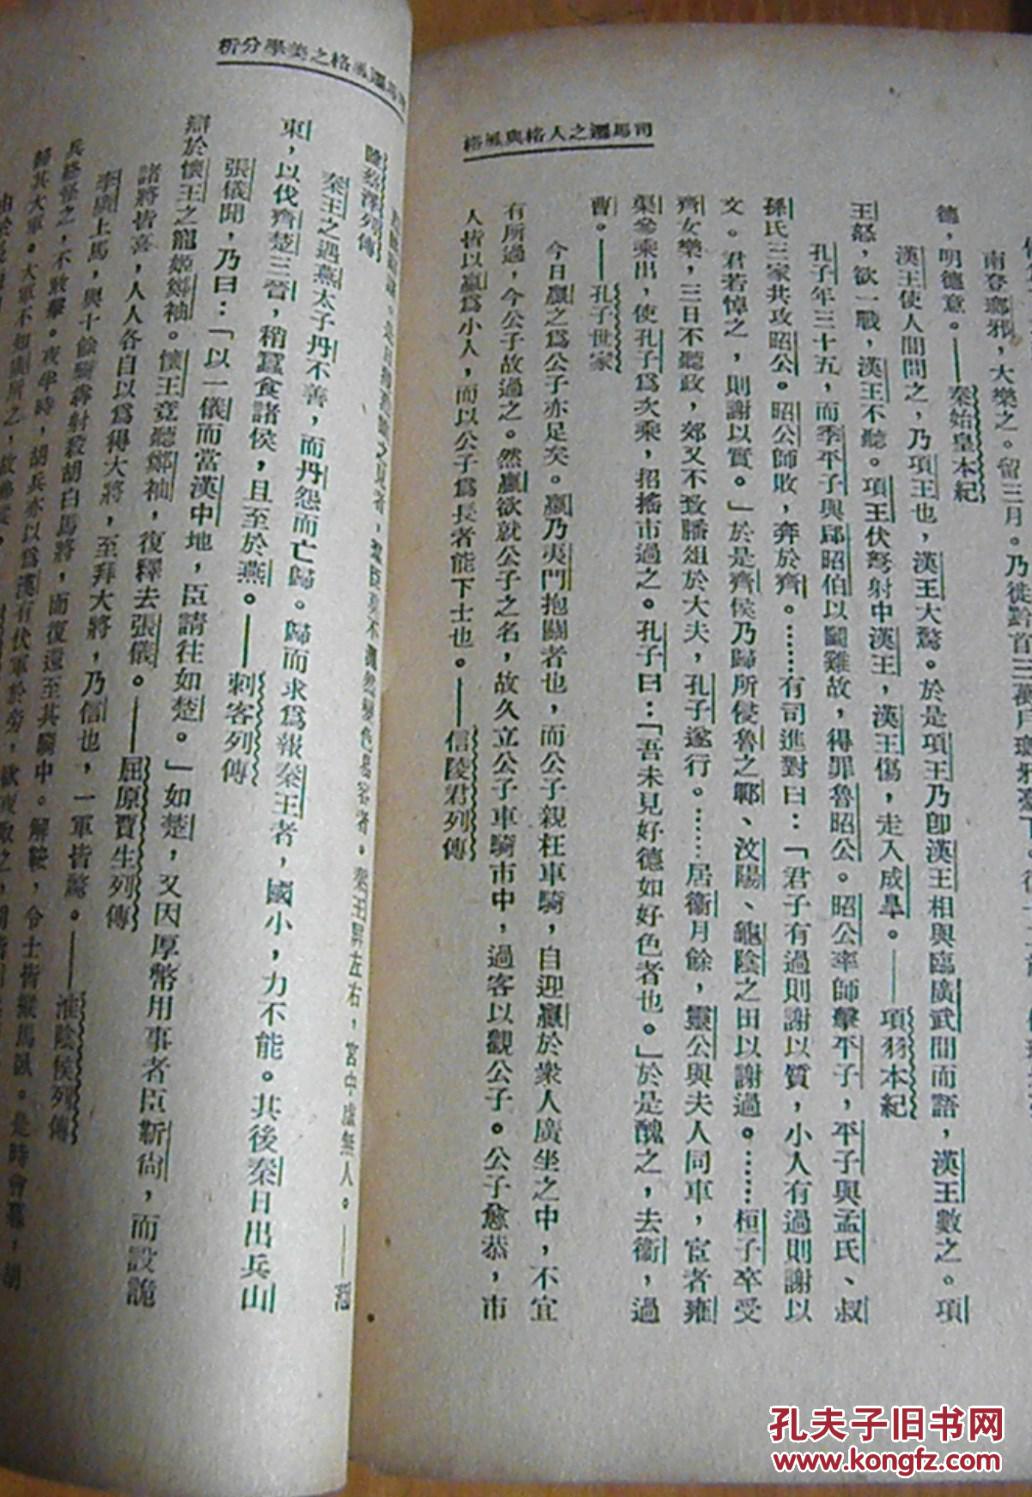 司馬遷之人格與風格
南登瑯邪，大樂之。留三月。乃徙黔首三萬戶瑯邪臺下。復十二
德，明德意。——秦始皇本紀
漢王使人間問之，乃項王也，漢王大驚。於是項王乃卽漢王相與臨廣武間而語，漢王數之。項
王怒，欲一戰，漢王不聽。項王伏弩射中漢王，漢王傷，走入成臯。——項羽本紀
孔子年三十五，而季平子與郈昭伯以鬬雞故，得罪魯昭公。昭公率師擊平子，平子與孟氏、叔
孫氏三家共攻昭公。昭公師敗，奔於齊。……有司進對曰：「君子有過則謝以質，小人有過則謝以
文。君若悼之，則謝以質。」於是齊侯乃歸所侵魯之鄆、汶陽、龜陰之田以謝過。……桓子卒受
齊女樂，三日不聽政，郊又不致膰俎於大夫，孔子遂行。……居衞月餘，靈公與夫人同車，宦者雍
渠參乘出，使孔子爲次乘，招搖市過之。孔子曰：「吾未見好德如好色者也。」於是醜之，去衞，過
曹。——孔子世家
今日嬴之爲公子亦足矣。嬴乃夷門抱關者也，而公子親枉車騎，自迎嬴於衆人廣坐之中，不宜
有所過，今公子故過之。然嬴欲就公子之名，故久立公子車騎市中，過客以觀公子。公子愈恭，市
人皆以嬴爲小人，而以公子爲長者能下士也。——信陵君列傳
司馬遷風格之美學分析
者，羣臣莫不洒然變色易容者。秦王屏左右，宮中虛無人。——范
睢蔡澤列傳
秦王之遇燕太子丹不善，而丹怨而亡歸。歸而求爲報秦王者，國小，力不能。其後秦日出兵山
東，以伐齊楚三晉，稍蠶食諸侯，且至於燕。——刺客列傳
張儀聞，乃曰：「以一儀而當漢中地，臣請往如楚。」如楚，又因厚幣用事者臣靳尙，而設詭
辯於懷王之寵姬鄭袖。懷王竟聽鄭袖，復釋去張儀。——屈原賈生列傳
諸將皆喜，人人各自以爲得大將，至拜大將，乃信也，一軍皆驚。——淮陰侯列傳
李廣上馬，與十餘騎犇射殺胡白馬將，而復還至其騎中。解鞍，令士皆縱馬臥。是時會暮，胡
兵終怪之，不敢擊。夜半時，胡兵亦以爲漢有伏軍於旁，欲夜取之，胡皆引
歸其大軍。大軍不知廣所之，故弗從。
孔夫子旧书网
www.kongfz.com